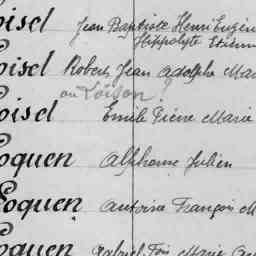 oisel Jean Baptiste Henri Eugène
Hippolyte Etienne
oisel Robert Jean Adolphe Mar
ou Loison ?
oisel Emile Pierre Marie
oquen Alphonse Julien
oquen Antoine François M
oquen Gabriel Marie